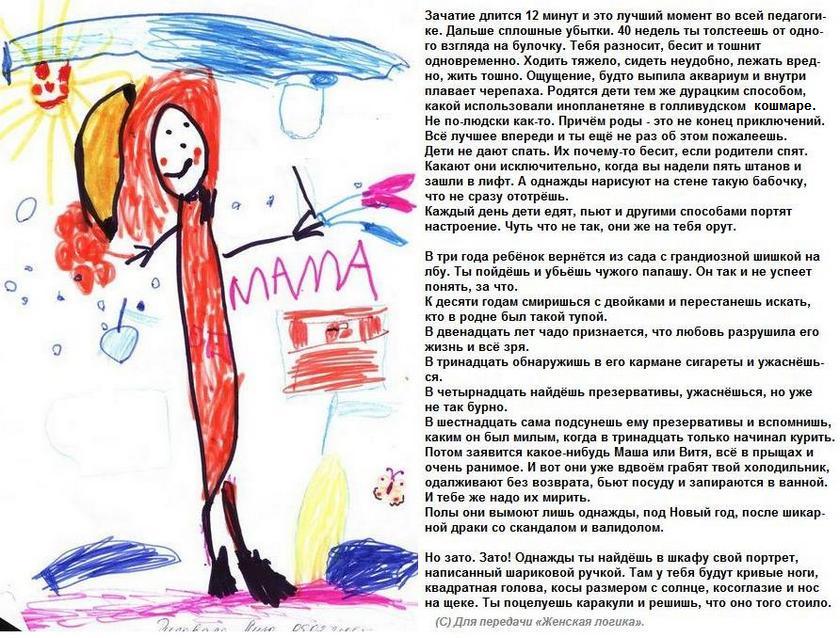 МАМА
Зачатие длится 12 минут и это лучший момент во всей педагоги-
ке. Дальше сплошные убытки. 40 недель ты толстеешь от одно-
го взгляда на булочку. Тебя разносит, бесит и тошнит
одновременно. Ходить тяжело, сидеть неудобно, лежать вред-
но, жить тошно. Ощущение, будто выпила аквариум и внутри
плавает черепаха. Родятся дети тем же дурацким способом,
какой использовали инопланетяне в голливудском кошмаре.
Не по-людски как-то. Причём роды - это не конец приключений.
Всё лучшее впереди и ты ещё не раз об этом пожалеешь.
Дети не дают спать. Их почему-то бесит, если родители спят.
Какают они исключительно, когда вы надели пять штанов и
зашли в лифт. А однажды нарисуют на стене такую бабочку,
что не сразу ототрёшь.
Каждый день дети едят, пьют и другими способами портят
настроение. Чуть что не так, они же на тебя орут.
В три года ребёнок вернётся из сада с грандиозной шишкой на
лбу. Ты пойдёшь и убьёшь чужого папашу. Он так и не успеет
понять, за что.
К десяти годам смиришься с двойками и перестанешь искать,
кто в родне был такой тупой.
В двенадцать лет чадо признается, что любовь разрушила его
жизнь и всё зря.
В тринадцать обнаружишь в его кармане сигареты и ужаснёшь-
ся.
В четырнадцать найдёшь презервативы, ужаснёшься, но уже
не так бурно.
В шестнадцать сама подсунешь ему презервативы и вспомнишь,
каким он был милым, когда в тринадцать только начинал курить.
Потом заявится какое-нибудь Маша или Витя, всё в прыщах и
очень ранимое. И вот они уже вдвоём грабят твой холодильник,
одалживают без возврата, бьют посуду и запираются в ванной.
И тебе же надо их мирить.
Полы они вымоют лишь однажды, под Новый год, после шикар-
ной драки со скандалом и валидолом.
Но зато. Зато! Однажды ты найдёшь в шкафу свой портрет,
написанный шариковой ручкой. Там у тебя будут кривые ноги,
квадратная голова, косы размером с солнце, косоглазие и нос
на щеке. Ты поцелуешь каракули и решишь, что оно того стоило.
(С) Для передачи «Женская логика».